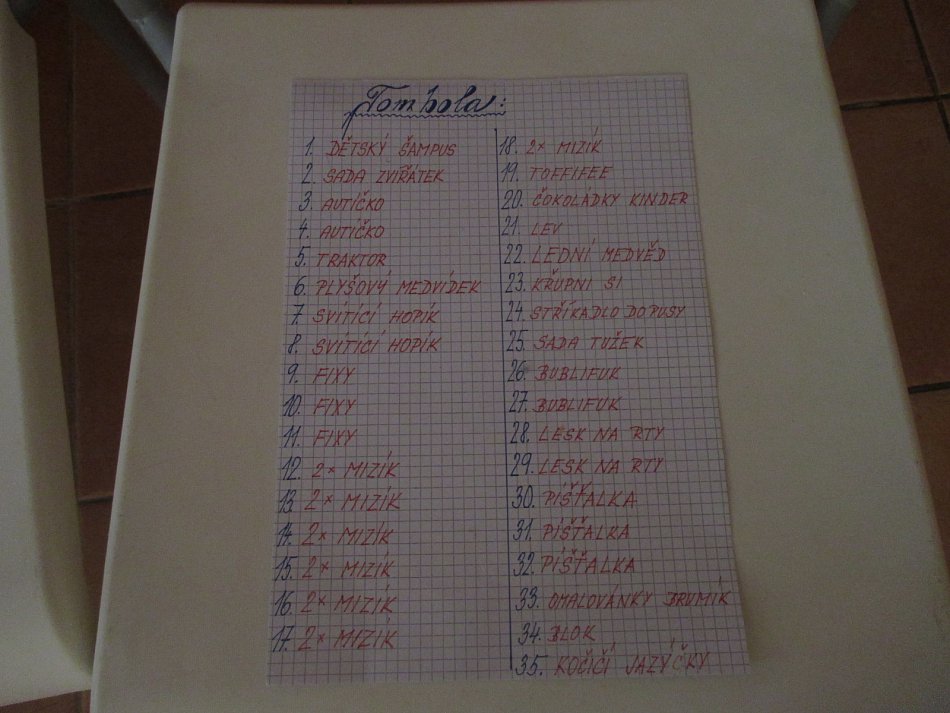 Tombola:
1. DĚTSKÝ ŠAMPUS
2. SADA ZVÍŘÁTEK
3. AUTÍČKO
4. AUTÍČKO
5. TRAKTOR
6. PLYŠOVÝ MEDVÍDEK
7. SVÍTÍCÍ HOPÍK
8. SVÍTÍCÍ HOPÍK
9. FIXY
10. FIXY
11. FIXY
12. 2x MIZÍK
13. 2x MIZÍK
14. 2x MIZÍK
15. 2x MIZÍK
16. 2x MIZÍK
17. 2x MIZÍK
18. 2x MIZÍK
19. TOFFIFEE
20. ČOKOLÁDKY KINDER
21. LEV
22. LEDNÍ MEDVĚD
23. KŘUPNI SI
24. STŘÍKADLO DO PUSY
25. SADA TUŽEK
26. BUBLIFUK
27. BUBLIFUK
28. LESK NA RTY
29. LESK NA RTY
30. PÍŠŤALKA
31. PÍŠŤALKA
32. PÍŠŤALKA
33. OMALOVÁNKY BRUMÍK
34. BLOK
35. KOČIČÍ JAZÝČKY